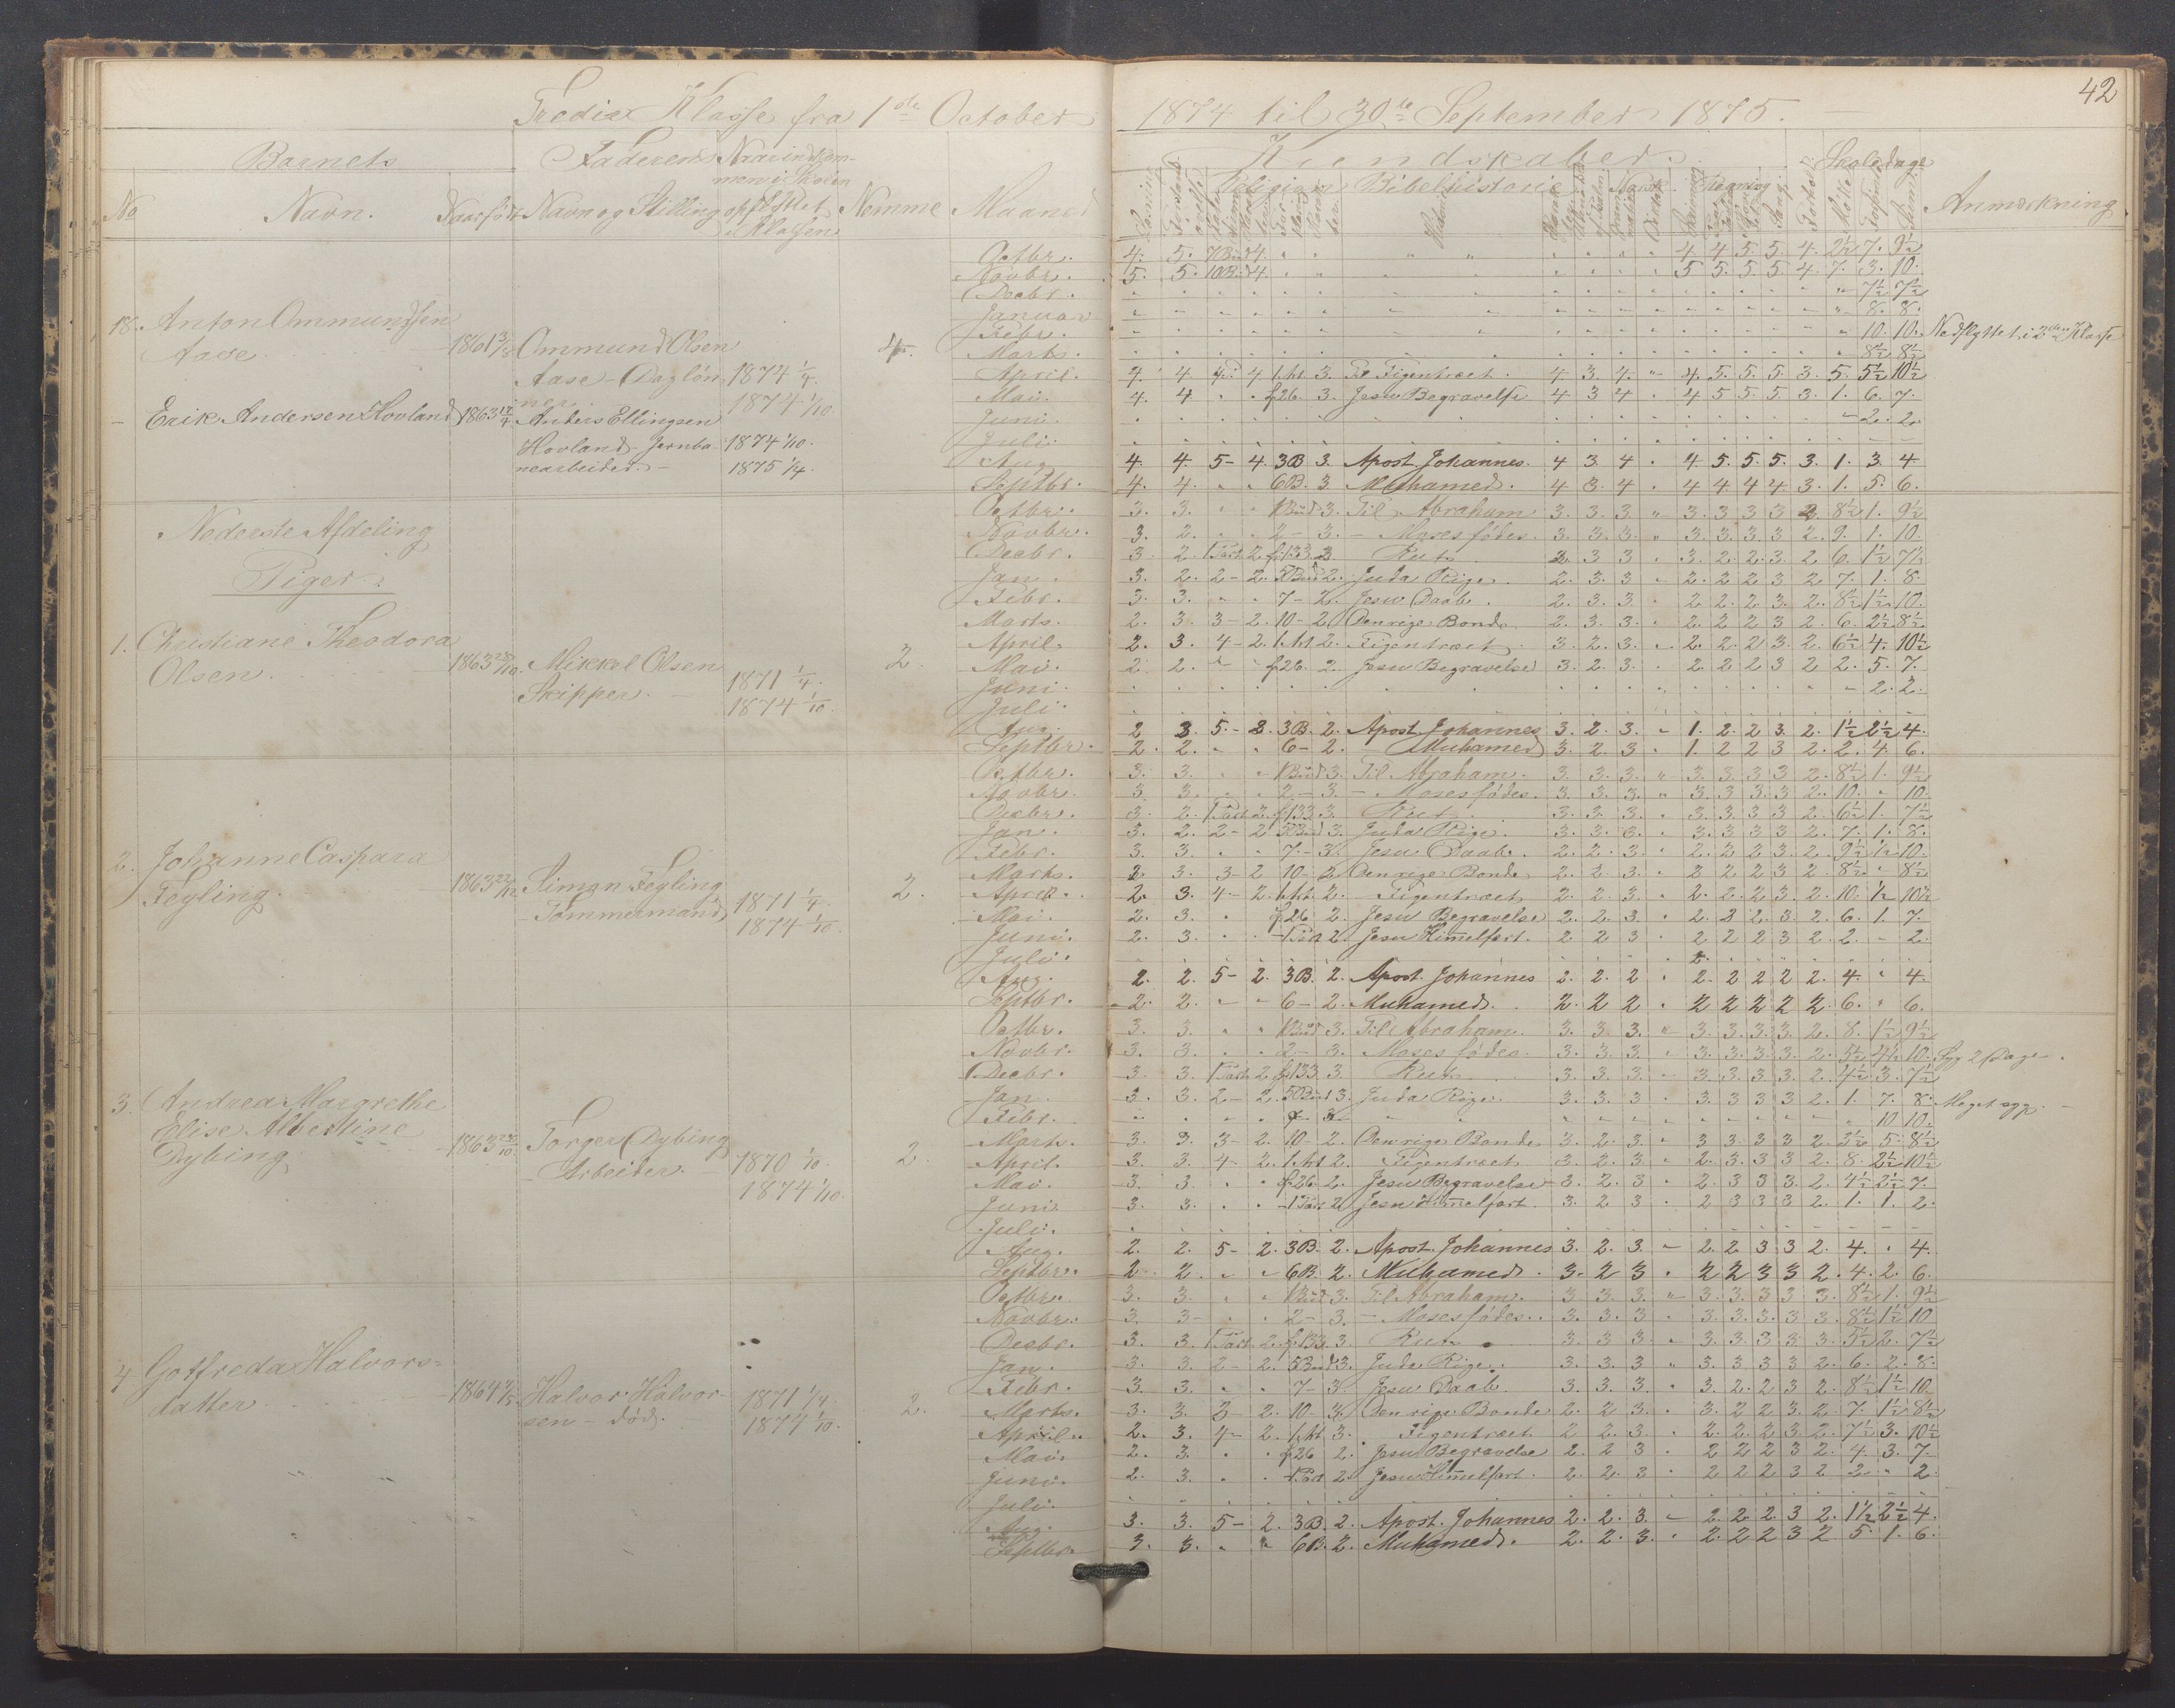 42
Tredie Klasse fra 1ste October 1874 til 30te September 1875.
Barnets
Faderens
Naar indkommen i Skolen
Kundskaber.
Skoledage
No
Navn.
Naar født
Navn og Stilling
opflyttet i Klassen
Nemme
Maaned
Religion
Bibelhistorie
Norsk.
Regning
Anmærkning
18. Anton Ommundsen
Aase
1861
Ommund Olsen
Aase - Dagløn-
ner.
1874 1/4.
1874 1/10.
4.
Erik Andersen Hovland
1863 17/4
Anders Ellingsen
Hovland. Jernba-
nearbeider. -
1874 1/10.
1875 1/4.
Octbr. 4. 5. 7 Bud 4. 4 4 5. 5. 4. 2½ 7. 9½
Novbr. 5. 5. 10 Bud 4. 5 5. 5. 5 4. 7. 3. 10.
Decbr. 7½ 7½
Januar 8. 8.
Febr. 10. 10. Nedflyttet i 2den Klasse
Marts. 8½ 8½
April. 4. 4 4 - 4 1.Art 3. Til Figentræet. 4 3. 4. 4. 5. 5. 5 3. 5. 5½ 10½
Mai. 4. 4 f26. 3. Jesu Begravelse 4 3 4 4 5 5 5. 3. 1. 6. 7.
Juni. 2. 2.
Juli.
Aug. 4. 4. 5 - 4. 3B 3. Apost. Johannes. 4 3 4 4 5. 5. 5. 3. 1. 3. 4
Septbr. 4. 4. 6B. 3 Muhamed. 4 3. 4 4 4. 4 4. 3. 1. 5. 6.
Nederste Afdeling
Piger.
1. Christiane Theodora
Olsen.
1863 28/10.
Mikkel Olsen
Skipper. -
1871 1/4.
1874 1/10.
2.
Octbr. 3. 3. 1 Bud 3. Til Abraham 3. 3. 3. 3. 3 3 3 2 8½ 1. 9½
Novbr. 3. 2. 2 - 3. - Moses fødes. 3. 3. 3. 3. 3. 3. 3 2. 9. 1. 10.
Decbr. 3 2. 1 Part 2. f133. 3 Rut 3. 3 3 3. 2. 2. 3. 2 6. 1½ 7½
Jan. 3. 2. 2 - 2. 5 Bud 2. Juda Rige. 2. 3. 3 2. 2 2 3 2 7. 1. 8.
Febr. 3. 3. 7 - 2. Jesu Daab. 2. 3. 3. 2. 2. 2 3. 2. 8½ 1½ 10.
Marts. 2. 3 3 - 2. 10 - 2. Den rige Bonde. 2. 3. 3. 2. 2 2 3 2. 6. 2½ 8½
April. 2. 3. 4 - 2. 1.Art 2. Figentræet 3. 2. 3. 2. 2. 2 3 2. 6½ 4. 10½
Mai. 2 2. f26. 2. Jesu Begravelse 3. 2 3. 2. 2 2 3 2 2. 5. 7.
Juni. 2. 2.
Juli.
Aug. 2 3. 5. - 2. 3B. 2. Apost. Johannes 3. 2. 3. 1. 2. 2 3. 2. 1½ 2½ 4.
Septbr. 2. 2. 6 - 2. - Muhamed 3. 2. 3 1. 2 2 3 2. 2. 4. 6.
2. Johanne Caspara
Feyling.
1863 22/12
Simon Feyling
- Tømmermand
1871 1/4.
1874 1/10.
2.
Octbr. 3. 3. 1 Bud 3. Til Abraham. 3. 3. 3. 3. 3. 3 3 2. 8½ 1. 9½
Novbr. 3. 3. 2 - 3. - Moses fødes. 3. 3. 3. 3. 3 3. 3 2. 10. 10.
Decbr. 3. 2. 1 Part 2. f133 3. Rut 3. 3. 3. 3. 3 3 3 2. 6½ 1. 7½
Jan. 3. 2. 2 - 2 5 Bud 3. Juda Rige. 3. 3. 3. 3. 3. 3 3 2. 7. 1. 8.
Febr. 3. 3. 7. - 3. Jesu Daab. 2. 2. 3. 2. 2 2 3. 2. 9½ ½ 10.
Marts. 2 3. 3 - 2 10 - 2 Den rige Bonde 2. 2. 3. 2 2 2 3 2. 8½ 8½
April. 2. 3. 4 - 2. 1.Art 2. - Figentræet 2. 2. 3. 2. 2. 2 3. 2. 10. ½ 10½
Mai. 2. 3. f26 2. Jesu Begravelse 2. 2. 3. 2. 2 2. 3. 2. 6. 1. 7.
Juni. 2. 3. 1 Part 2. Jesu Himmelfart. 2 2 3 2 2 2 3 2. 2. 2.
Juli.
Aug. 2. 2. 5 - 2. 3B. 2. Apost. Johannes 2. 2. 2 2. 2 2 2 2. 4. 4.
Septbr. 2. 2. 6 - 2. Muhamed. 2. 2 2 2 2 2 2 2. 6. 6.
3. Andrea Margrethe
Elise Albertine
Dybing
1863
Torger Dybing
- Arbeider. -
1870 1/10.
1874 1/10.
2.
Octbr. 3. 3. 1 Bud 3. Til Abraham. 3. 3 3. 3. 3. 3. 3. 2. 8. 1½ 9½
Novbr. 3. 3. 2 - 3. Moses fødes. 3. 3. 3. 3. 3. 3. 3. 2. 10. Syg 2 Dage.
Decbr. 3. 3. 1 Part 2 f133 3. Rut 3. 3. 3. 3. 3. 3. 3. 2. 4½ 3. 7½
Jan. 3. 3. 2 - 2. 5 Bud 3. Juda Rige. 3. 3. 3 3. 3 3 3 2. 1. 7. 8. Meget syg. -
Febr. 10 10.
Marts. 3. 3. 3 - 2. 10 - 2. Den rige Bonde 3. 2. 3. 3 3. 3 3 2. 3½ 5. 8½
April. 3. 3. 4 - 2. 1.Art 2. Figentræet 3. 2. 3. 2. 3. 3 3 2. 8. 2½ 10½
Mai. 3. 3. f26. 2. Jesu Begravelse 3. 2. 3 2. 3 3 3. 2. 4½ 2½ 7.
Juni 3. 3. 1 Part 2 Jesu Himmelfart 3. 2 3 2 3 3 3 2. 1. 1. 2.
Juli.
Aug. 2. 2. 5 - 2. 3B. 2. Apost. Johannes 3. 2. 3. 2. 2 3 3 2. 4. 4.
Septbr. 2. 2. 6B. 2. Muhamed. 3. 2 3 2 2 3 3 2. 4. 2. 6.
4 Gotfreda Halvors-
datter
1864
Halvor Halvor-
sen - død.
1871 1/4.
1874 1/10.
2.
Octbr. 3. 3. 1 Bud 3. Til Abraham. 3 3 3. 3. 3. 3 3 3. 8½ 1. 9½
Novbr. 3. 3 2 - 3. - Moses fødes. 3. 3. 3 3. 3. 3. 3 3 8½ 1½ 10
Decbr. 3. 3. 1 Part 2. f133 3. Rut 3 3 3 3. 3 3 3. 3. 5½ 2. 7½
Jan. 3. 3. 2 - 2. 5 Bud 3. Juda Rige. 3. 3. 3 3. 3 3 3 2. 6. 2. 8.
Febr. 3. 3. 7 - 3. Jesu Daab. 3. 3. 3. 3. 2. 2 3 2. 8½ 1½ 10
Marts. 3. 3. 3 - 2. 10 - 3. Den rige Bonde 2. 2 3. 3. 2 2 3. 2. 7. 1½ 8½
April. 2. 3. 4 - 2. 1.Art 3. Figentræet 2 2 3. 2. 2. 2 3 2. 7½ 3. 10½
Mai. 2. 3. f26 2. Jesu Begravelse 2. 2 3 2 2 2 3 2. 4. 3. 7.
Juni. 2. 3. 1 Part 2. Jesu Himmelfart. 2. 2. 3 2 2 2 3 2 2. 2.
Juli.
Aug. 3. 3. 5 - 2. 3B. 2. Apost. Johannes 2. 2. 3. 2. 2. 2 3 2. 1½ 2½ 4.
Septbr. 3. 3. 6B. 2. Muhamed. 2. 2. 3. 2. 2 2 3 2 5. 1. 6.